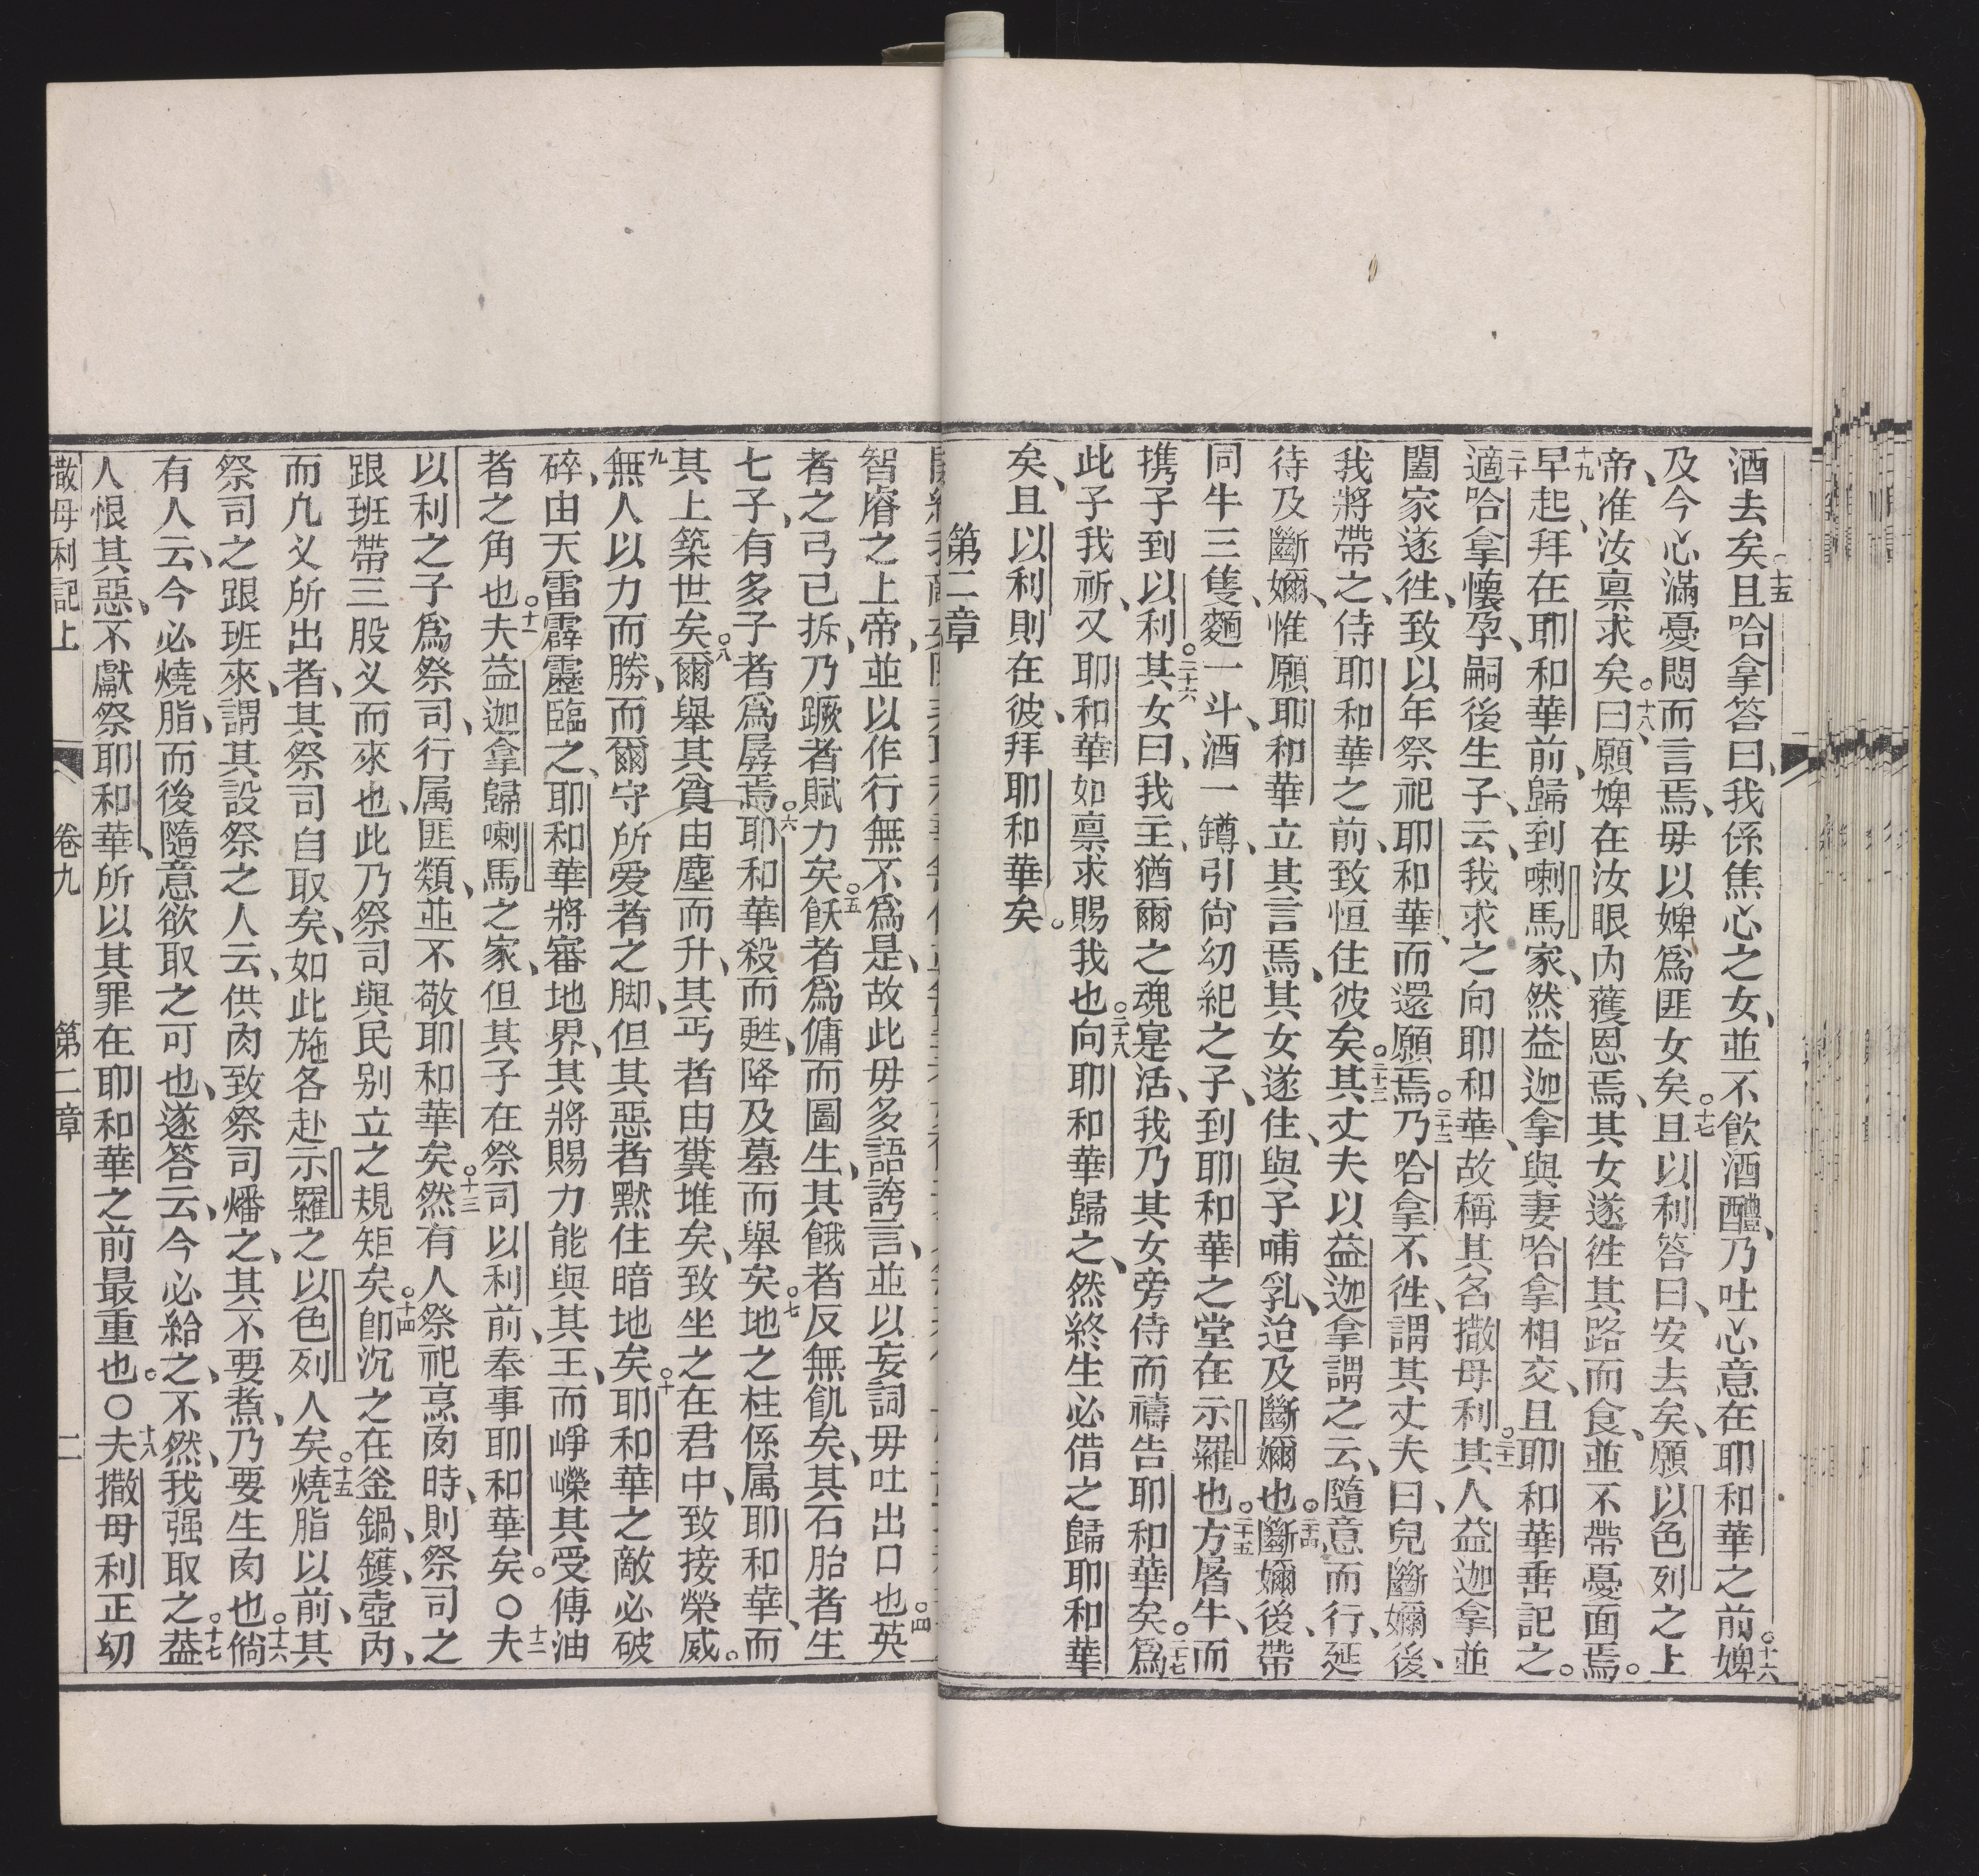 酒去矣○十五且哈拿答曰、我係焦心之女、並不飲酒醴、乃吐心意在耶和華之前○十六婢
及今心滿憂悶而言焉、毋以婢爲匪女矣○十七且以利答曰、安去矣、願以色列之上
帝、准汝禀求矣○十八曰、願婢在汝眼內獲恩焉、其女遂徃其路而食、並不帶憂面焉。
十九早起、拜在耶和華前、歸到喇馬家、然益迦拿與妻哈拿相交、且耶和華垂記之。
二十適哈拿懷孕、嗣後生子、云、我求之向耶和華、故稱其名撒母利○二十一其人益迦拿並
闔家遂徃、致以年祭祀耶和華、而還願焉○二十二乃哈拿不徃、謂其丈夫曰、兒斷嬭後、
我將帶之、侍耶和華之前、致恒住彼矣○二十三其丈夫以益迦拿謂之云、隨意而行、延
待及斷嬭、惟願耶和華立其言焉、其女遂住、與子哺乳、迨及斷嬭也○二十四斷嬭後、帶
同牛三隻、麵一斗、酒一罇、引尙幼紀之子、到耶和華之堂在示羅也○二十五方屠牛、而
携子到以利○二十六其女曰、我主、猶爾之魂寔活、我乃其女旁侍而禱告耶和華矣○二十七爲
此子我祈、又耶和華如禀求賜我也○二十八向耶和華歸之、然終生必借之歸耶和華
矣、且以利則在彼、拜耶和華矣。
第二章
智睿之上帝、並以作行無不爲是、故此毋多語誇言、並以妄詞毋吐出口也○四英
者之弓已拆、乃蹶者賦力矣○五飫者爲傭而圖生、其餓者反無飢矣、其石胎者生
七子、有多子者爲孱焉○六耶和華殺而甦、降及墓而舉矣○七地之柱係属耶和華、而
其上築世矣○八爾舉其貧由塵而升、其丐者由糞堆矣、致坐之在君中、致接榮威。
九無人以力而勝、而爾守所爱者之脚、但其惡者黙住暗地矣○十耶和華之敵必破
碎、由天雷霹靂臨之、耶和華將審地界、其將賜力能與其王、而崢嶸其受傅油
者之角也○十一夫益迦拿歸喇馬之家、但其子在祭司以利前、奉事耶和華矣。○十二夫
以利之子爲祭司、行属匪類、並不敬耶和華矣○十三然有人祭祀烹肉時、則祭司之
跟班帶三股义而來也、此乃祭司與民別立之規矩矣○十四卽沉之在釜鍋、鑊、壺內、
而凣义所出者、其祭司自取矣、如此施各赴示羅之以色列人矣○十五燒脂以前、其
祭司之跟班來、謂其設祭之人云、供肉致祭司燔之、其不要煮、乃要生肉也○十六倘
有人云、今必燒脂、而後隨意欲取之可也、遂答云、今必給之、不然、我强取之○十七葢
人恨其惡、不獻祭耶和華、所以其罪在耶和華之前最重也。○十八夫撒母利正幼
撒母利記上　卷九　第二章　二